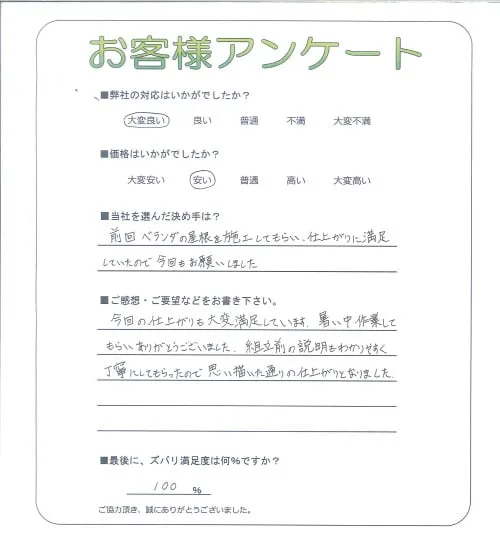 お客様アンケート
■弊社の対応はいかがでしたか？
大変良い 良い 普通 不満 大変不満
■価格はいかがでしたか？
大変安い 安い 普通 高い 大変高い
■当社を選んだ決め手は？
前回 ベランダの屋根を施工してもらい、仕上がりに満足
していたので今回もお願いしました
■ご感想・ご要望などをお書き下さい。
今回の仕上がりも大変満足しています。暑い中作業して
もらいありがとうございました。組立前の説明もわかりやすく
丁寧にしてもらったので思い描いた通りの仕上がりとなりました。
■最後に、ズバリ満足度は何%ですか？
100 %
ご協力頂き、誠にありがとうございました。